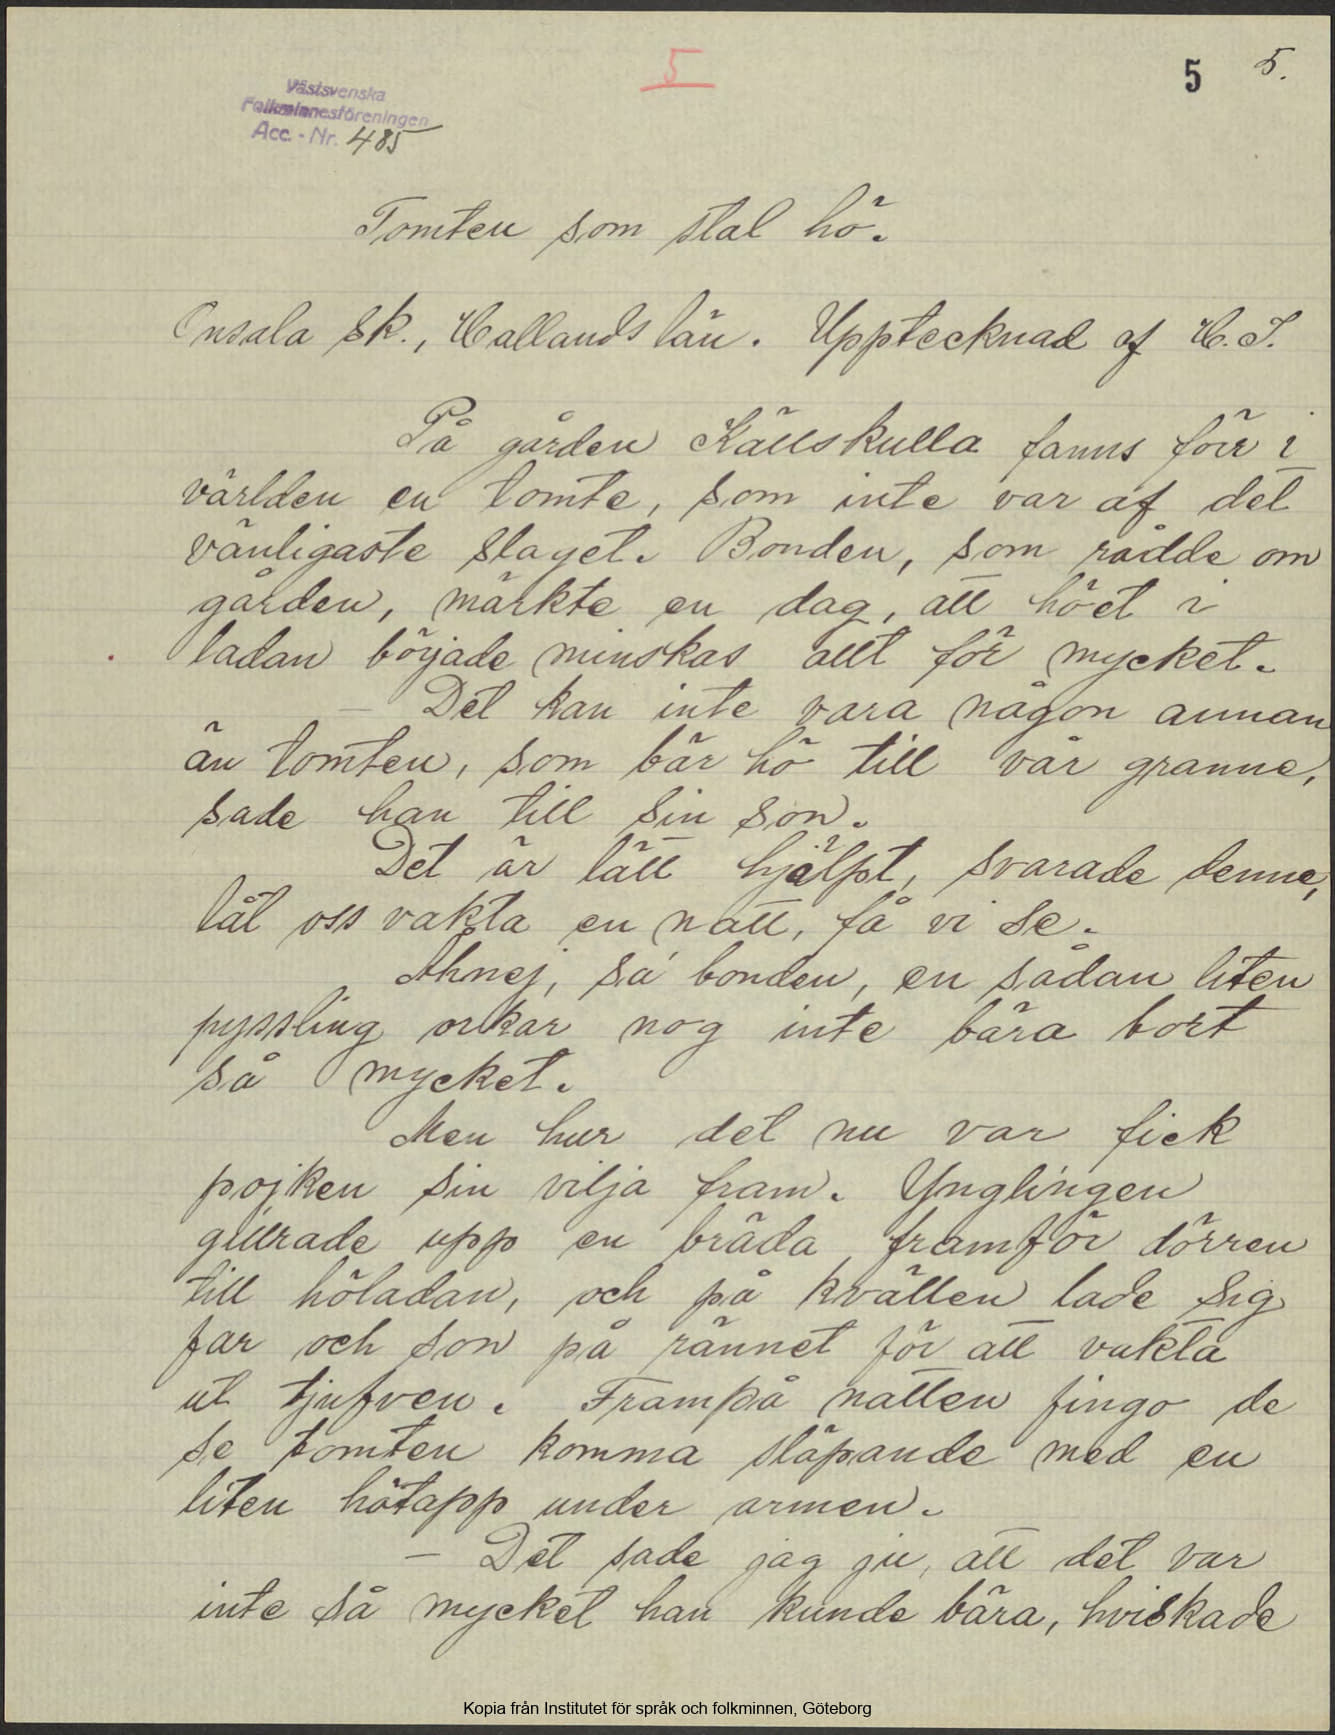 5
5 5.
Västsvenska
Folkminnesföreningen
Acc. - Nr. 485
Tomten som stal hö.
Onsala sk., Hallands län. Upptecknad af H. I.
På gården Källskulla fanns förr i
världen en tomte, som inte var af det
vänligaste slaget. Bonden, som rådde om
gården, märkte en dag, att höet i
ladan började minskas allt för mycket.
— Det kan inte vara någon annan
än tomten, som bär hö till vår granne,
sade han till sin son.
Det är lätt hjälpt, svarade denne,
låt oss vakta en natt, få vi se.
Åhnej, sa' bonden, en sådan liten
pyssling orkar nog inte bära bort
så mycket.
Men hur det nu var fick
pojken sin vilja fram. Ynglingen
gillrade upp en bräda framför dörren
till höladan, och på kvällen lade sig
far och son på rännet för att vakta
ut tjufven. Frampå natten fingo de
se tomten komma släpande med en
liten hötapp under armen.
— Det sade jag ju, att det var
inte så mycket han kunde bära, hviskade
Kopia från Institutet för språk och folkminnen, Göteborg